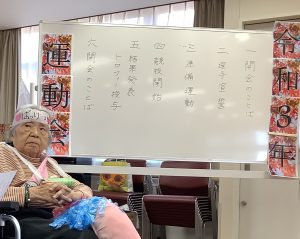 令和3年
一 開会のことば
二 選手宣誓
三 準備運動
四 競技開始
五 結果発表
トロフィー授与
六 閉会のことば
運動会